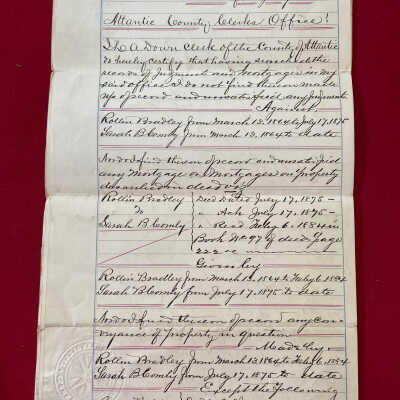 Atlantic County Clerks Office!
I A Down clerk of the County of Atlantic
do hereby certify that having searched the
records of Judgments and Mortgages in my
said office I do not find therein made
up of record and unsatisfied any Judgments
Against
Rollin Bradley from March 13, 1864 to July 17, 1875
Sarah B Comly from March 13, 1864 to date
Nor do I find therein of record and unsatisfied
any Mortgage or Mortgages on property
described in deed viz
Rollin Bradley
to
Sarah B. Comly
Deed Dated July 17, 1875 —
" Ack July 17, 1875 —
" Recd Feby 6. 1884 in
Book No 97 of deeds page
222 &c
Given by
Rollin Bradley from March 13, 1864 to Feby 6, 1884
Sarah B Comly from July 17, 1875 to date
Nor do I find therein of record any con-
veyance of property in question
Made by
Rollin Bradley from March 13, 1864 to Feby 6, 1884
Sarah B. Comly from July 17, 1875 to date
Except the following